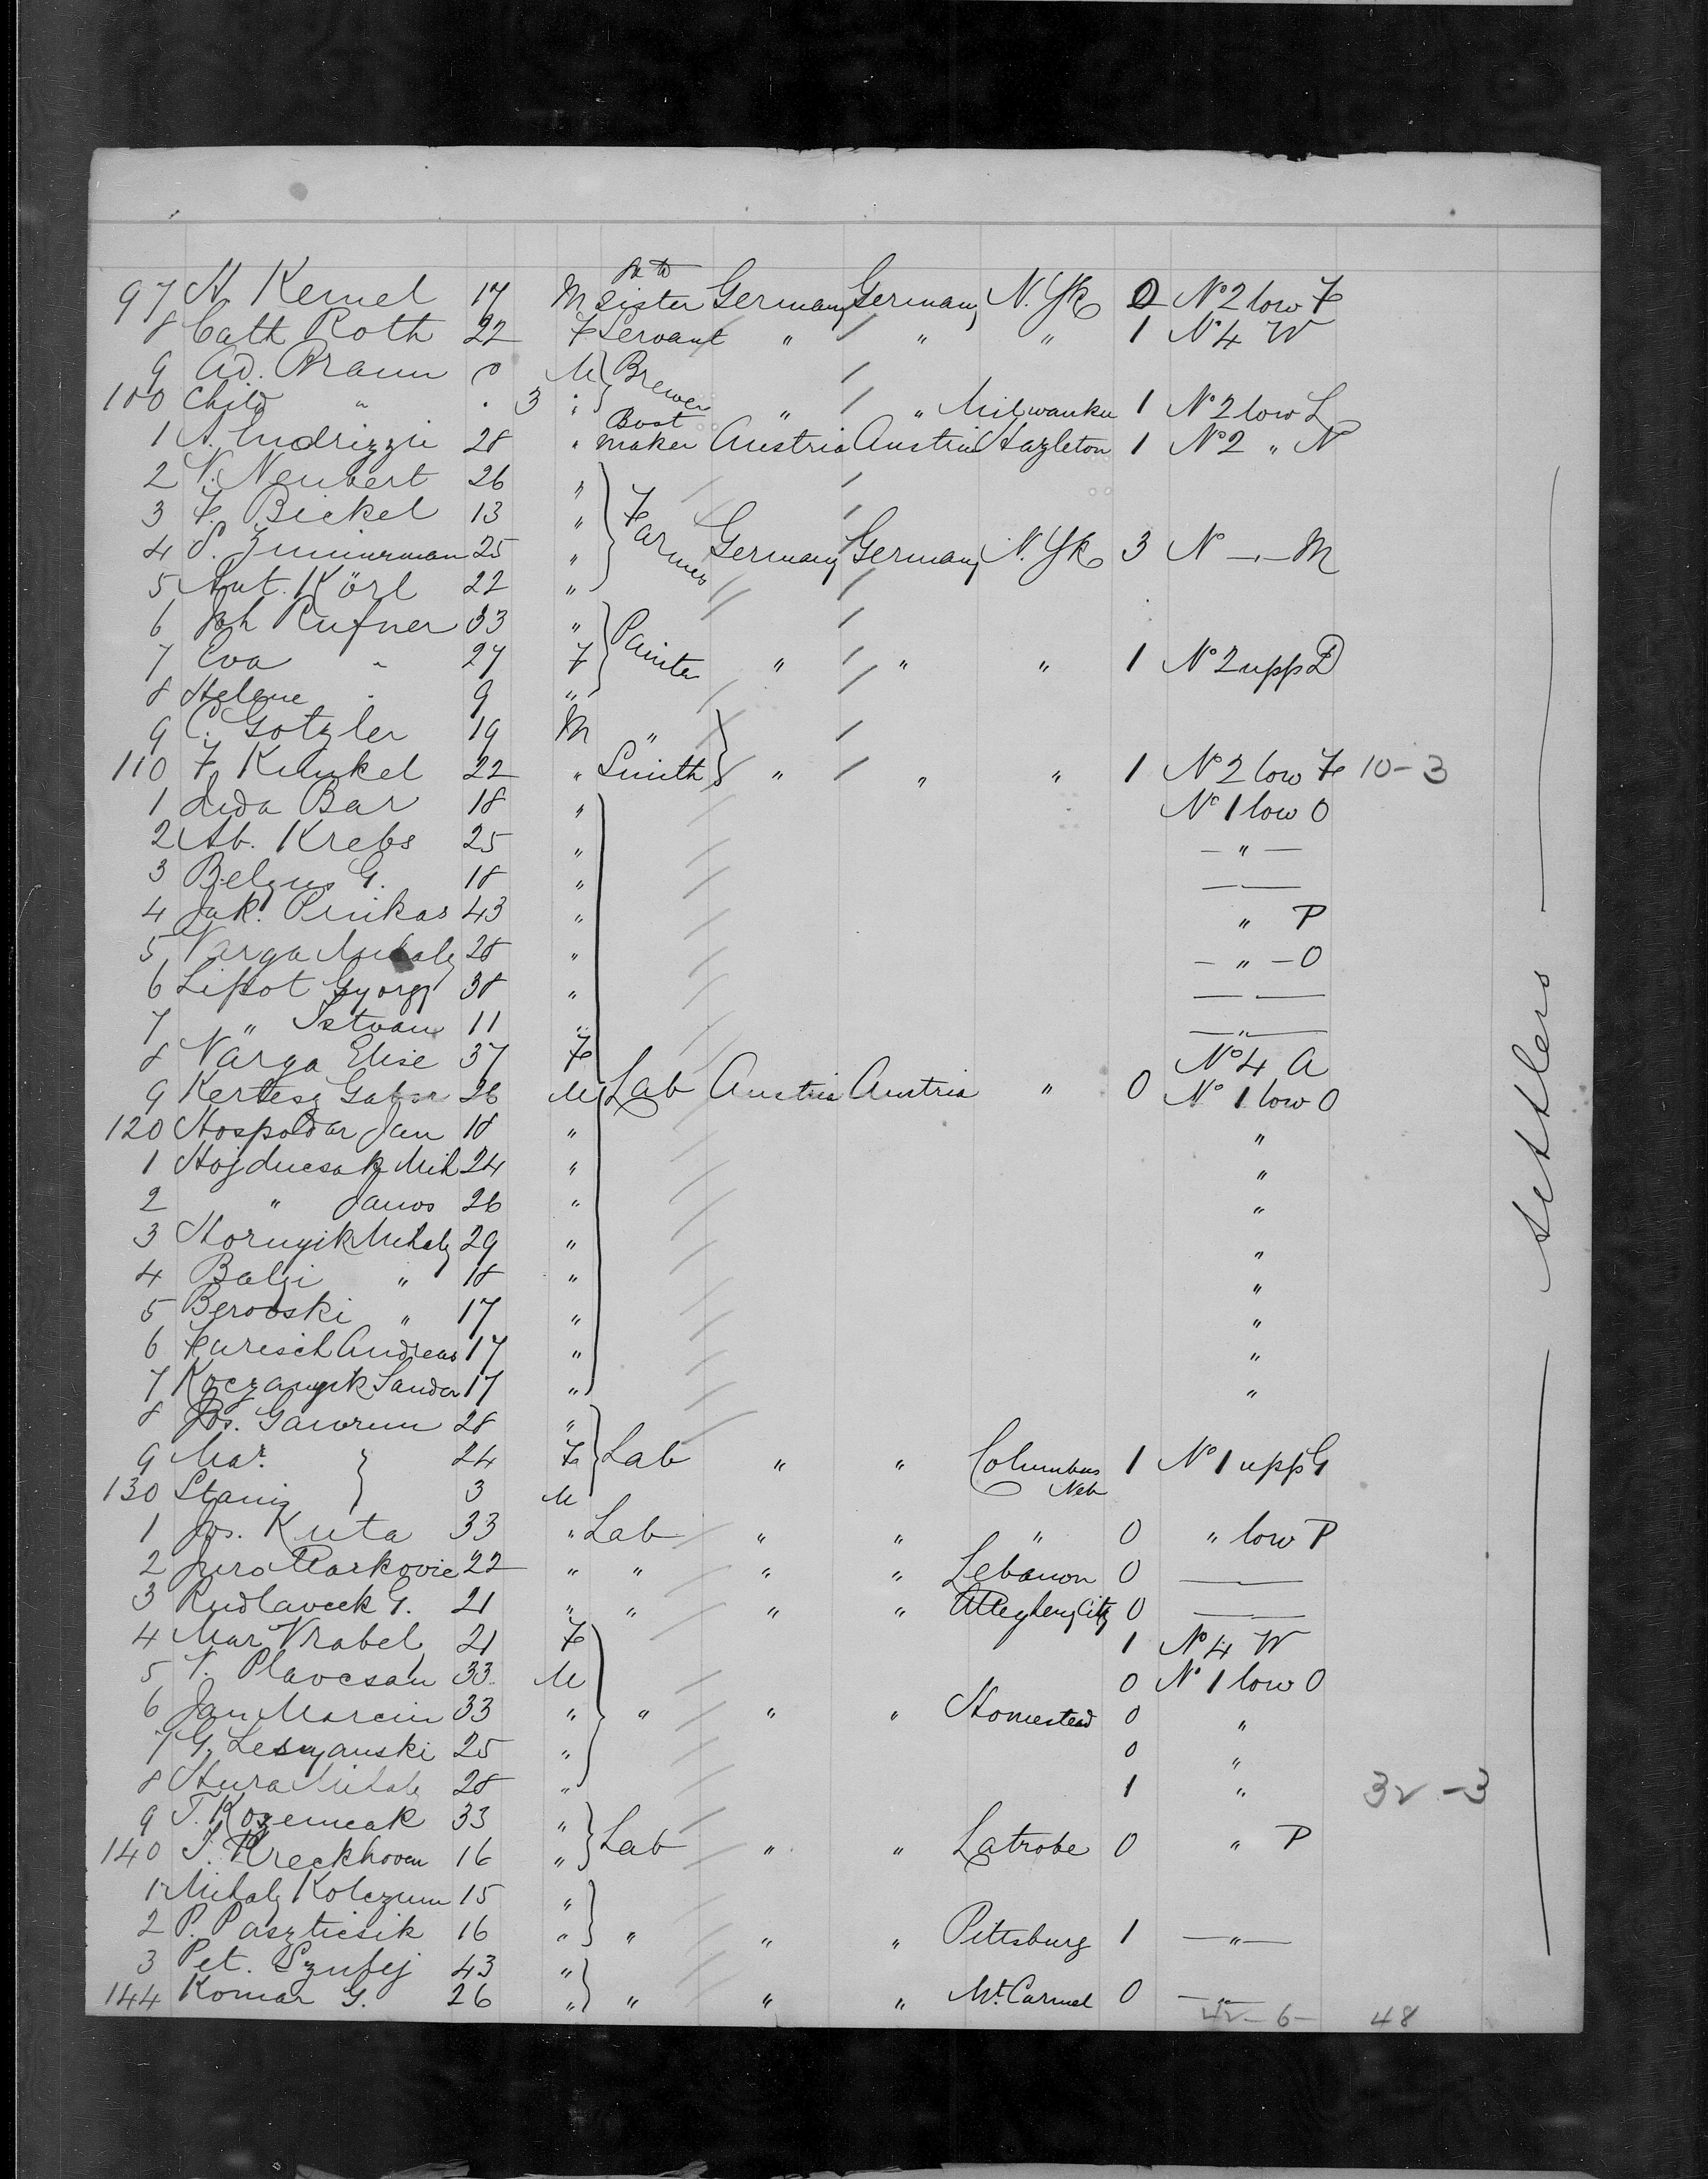 97 H. Kemel 17 M to sister Germany Germany N. Yk 0 No 2 low F
8 Cath Roth 22 F Servant " " " 1 No 4 W
9 Ad. Braun M Brewer
100 Child " 3 " " " Milwaukee 1 No 2 low L
1 A. Endrizzi 28 " Boot maker Austria Austria Hazleton 1 No 2 " N
2 V. Neubert 26 "
3 F. Bickel 13 " Farmer
4 S. Zimmerman 25 " Germany Germany N. Yk 3 N —"— M
5 Ant. Körl 22 "
6 Joh Rufner 33 "
7 Eva " 27 F Painter " " " 1 No 2 upp D
8 Helene " 9 "
9 C. Gotzler 19 M "
110 F. Kunkel 22 " Smith " " " 1 No 2 low F 10-3
1 Lida Bar 18 " No 1 low O
2 Ab. Krebs 25 " — " —
3 Belgus G. 18 " ———
4 Jak. Pinkas 43 " " P
5 Varga Mihaly 28 " — " — O
6 Lipot Gyorgy 38 " ———
7 " Istvan 11 " —"—
8 Varga Elise 37 F No 4 A
9 Kertesz Gabor 26 M Lab Austria Austria " 0 No 1 low O
120 Hospodar Jan 18 " "
1 Hojducsak Mih 24 " "
2 " Janos 26 " "
3 Hornyik Mihaly 29 " "
4 Balzi " 18 " "
5 Berooski " 17 " "
6 Furisch Andreas 17 " "
7 Koczanyik Sandor 17 " "
8 Jos. Gawrun 28 "
9 Mar. 24 F Lab " " Columbus Neb 1 No 1 upp G
130 Stanis 3 M
1 Jos. Kuta 33 " Lab " " " 0 " low P
2 Juro Markovic 22 " " " " Lebanon 0 ———
3 Rudlavcek G. 21 " " " " Allegheny City 0 ———
4 Mar Vrabel 21 F 1 No 4 W
5 V. Plavcsan 33 M 0 No 1 low O
6 Jan Marcin 33 " " " " Homestead 0 "
7 G. Lesnyanski 25 " 0 "
8 Hura Mihaly 28 " 1 " 32 - 3
9 T. Kozemcak 33 "
140 J. Kreckhoven 16 " Lab " " Latrobe 0 " P
1 Mihaly Kolczum 15 "
2 P. Paszticsik 16 " " " " Pittsburg 1 —"—
3 Pet. Sznfej 43 "
144 Komar G. 26 " " " " Mt. Carmel 0 —"—
42 - 6 - 48
Settlers